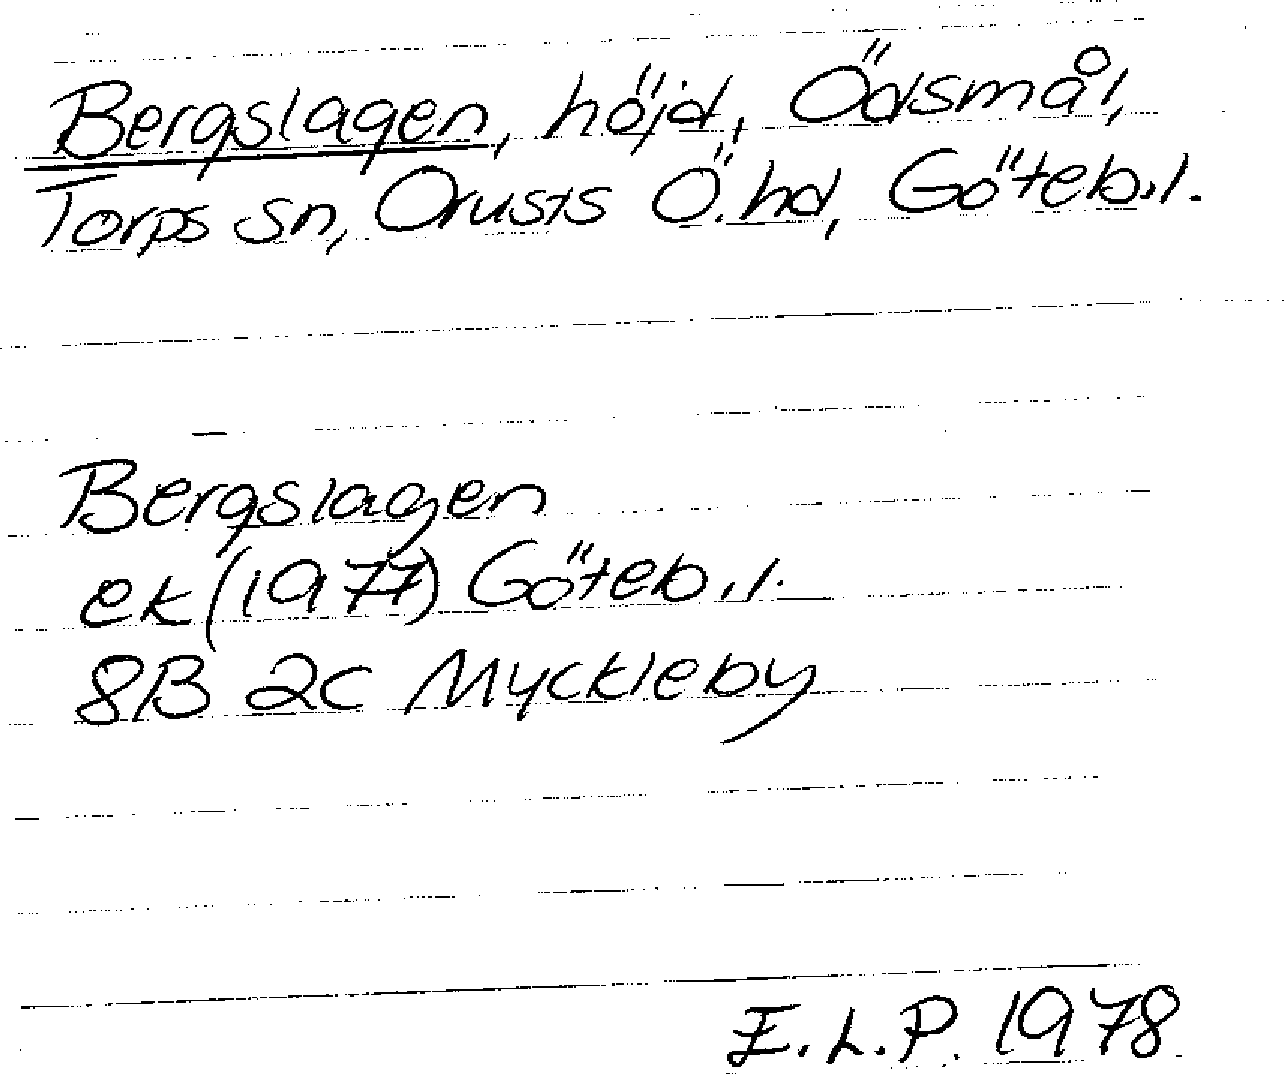 Bergslagen, höjd, Ödsmål,
Torps sn, Orusts Ö. hd, Göteb.l.
Bergslagen
ek (1977) Göteb.l.
8B 2c Myckleby
E.L.P. 1978